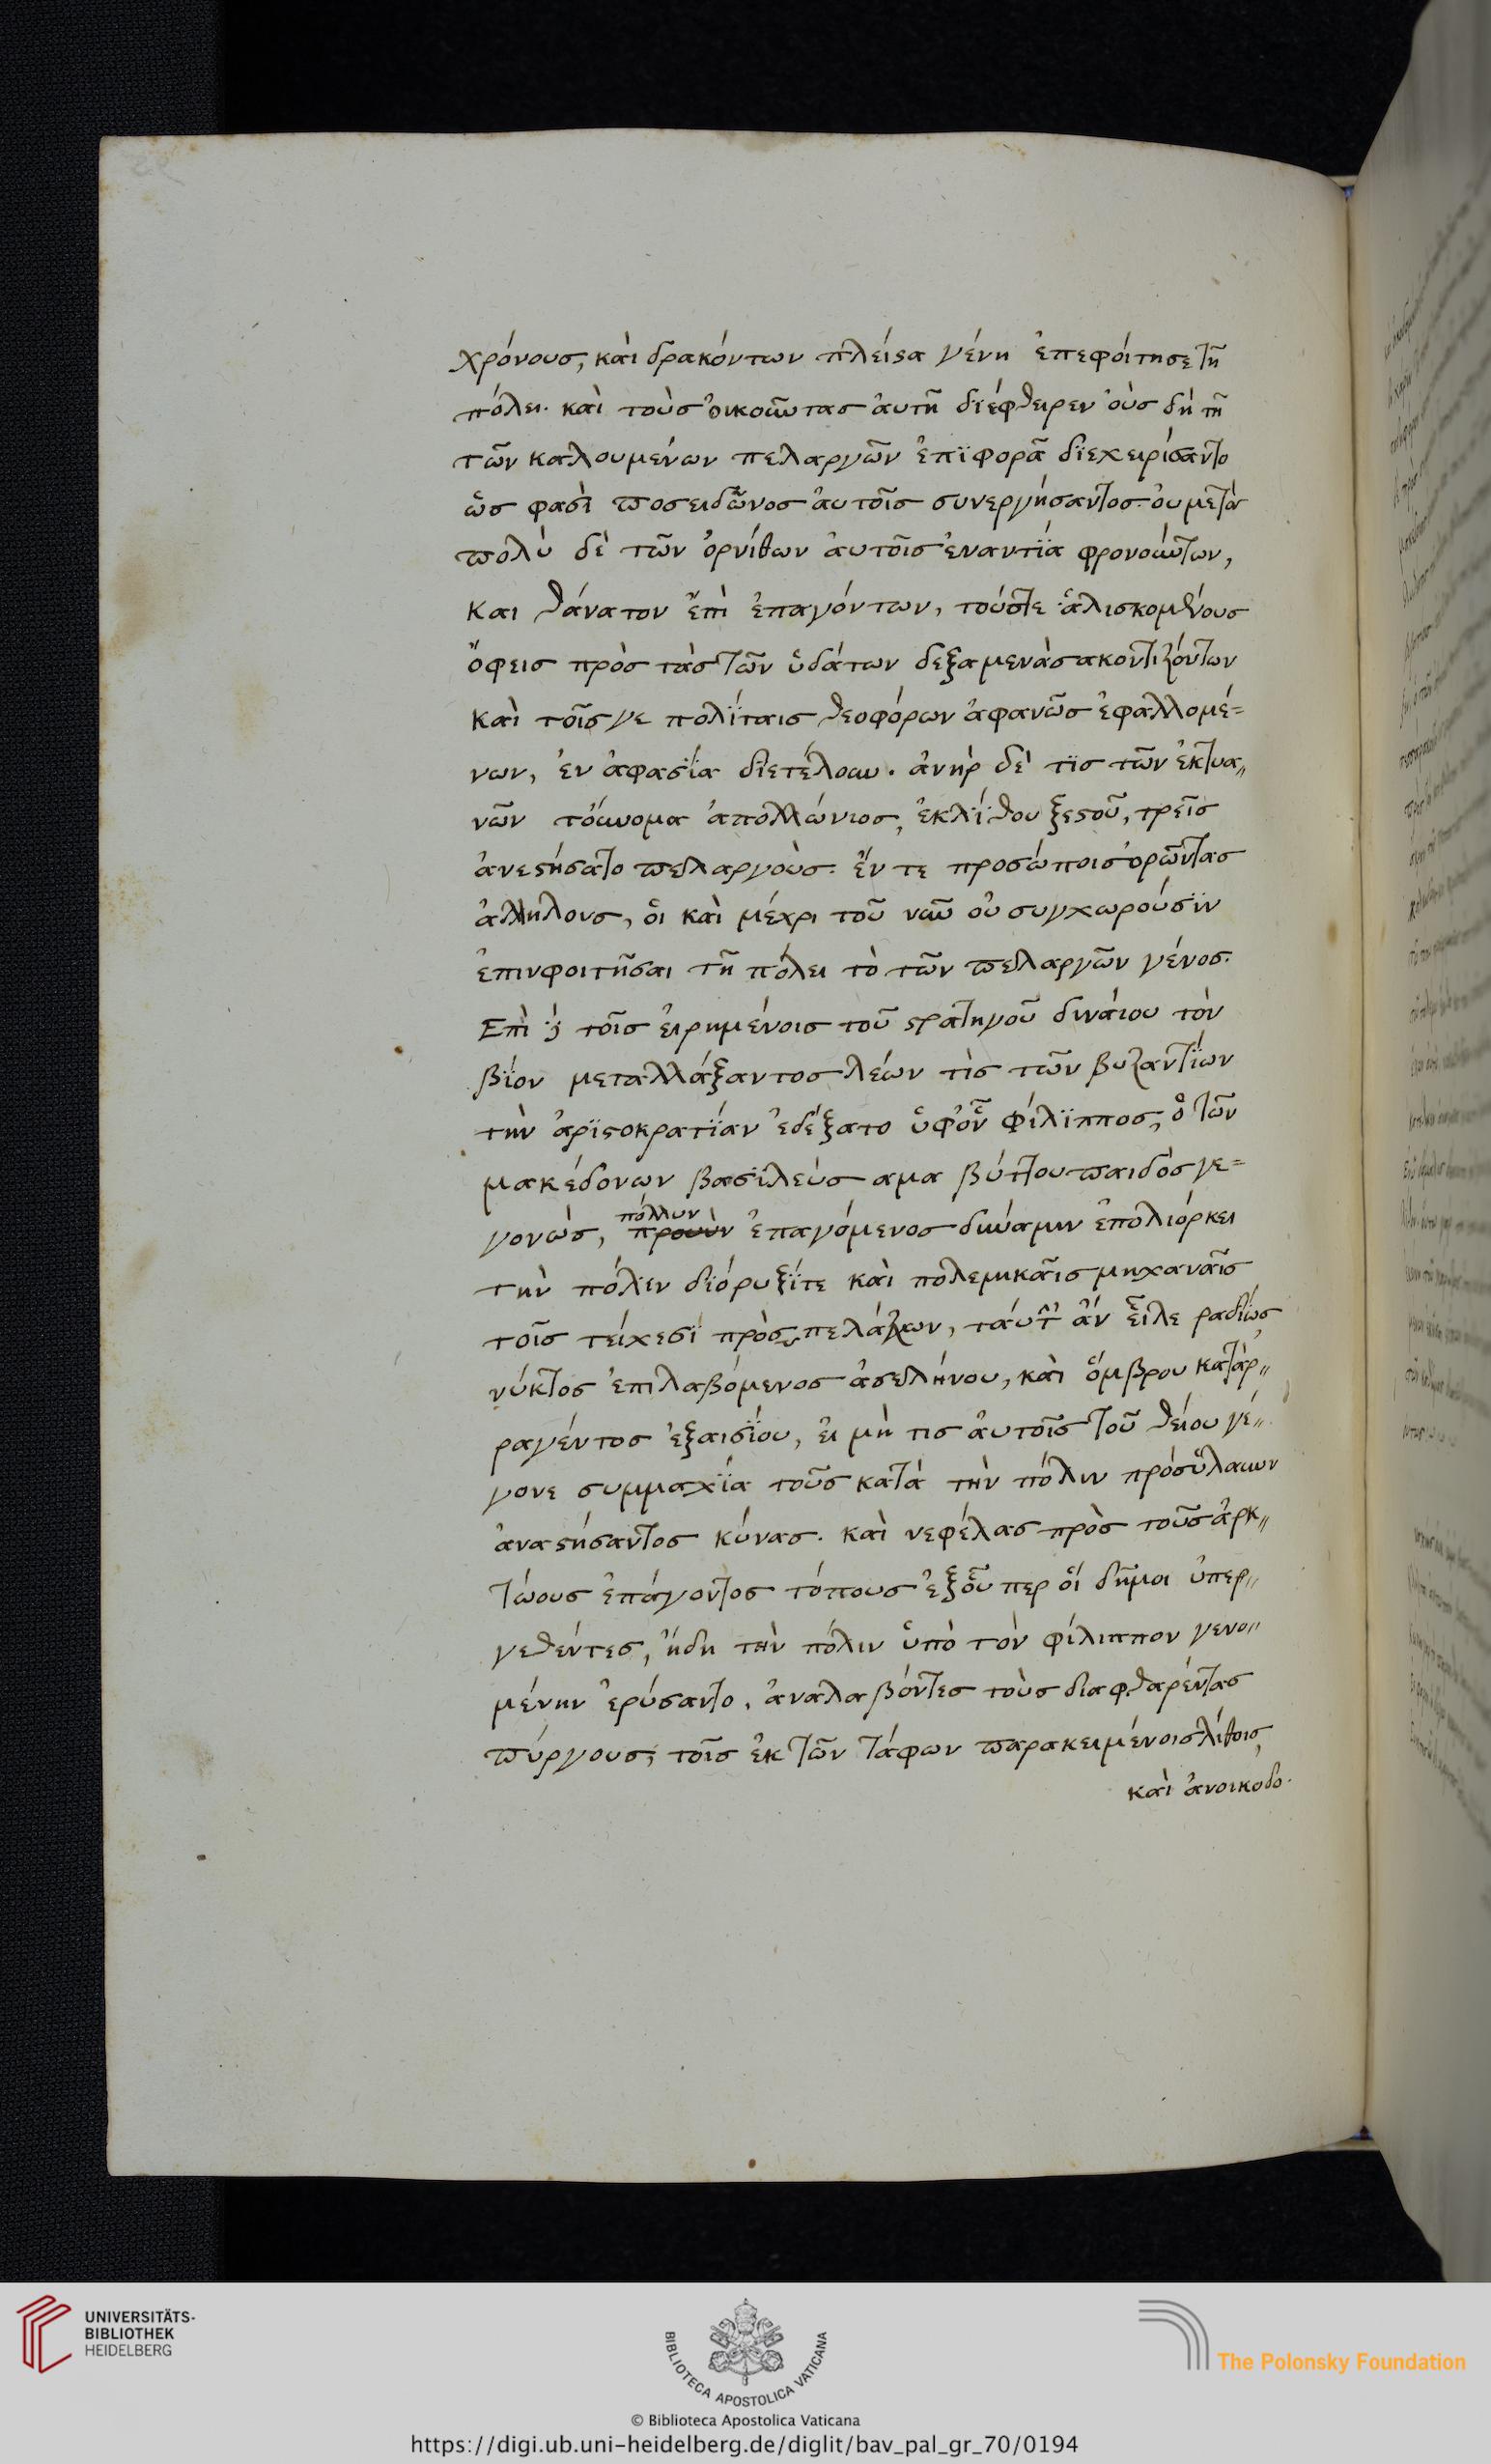 χρόνους, καὶ δρακόντων πλεῖϛα γένη ἐπεφοίτησε τῆ
πόλει. καὶ τοὺς οἰκοῦντας ἀυτῆ διέφθειρεν οὑς δὴ τῆ
τῶν καλουμένων πελαργῶν ἐπϊφορᾶ δϊεχειρίσαντο
ὥς φασὶ ποσειδῶνος ἀυτοῖς συνεργήσαντος. ὀυ μετὰ
πολὺ δὲ τῶν ὀρνίθων ἀυτοῖς ἐναντϊά φρονούντων,
και θάνατον ἔπὶ ἐπαγόντων, τούστε ἁλισκομένους
ὄφεις πρὸς τὰς τῶν ὑδάτων δεξαμενὰς ακοντιζόντων
καὶ τοῖς γε πολΐταις θεοφόρων ἀφανῶς ἐφαλλομέ=
νων, ἐν ἀφασΐα δϊετέλουν. ἀνὴρ δέ τϊς τῶν ἐκ τυα„
νῶν τοὔνομα ἀπολλώνιος, ἐκλΐθου ξεϛοῦ, τρεῖς
ἀνεϛήσατο πελαργοὺς. ἔν τε προσώποις ὁρῶντας
ἀλλήλους, ὁὶ καὶ μέχρι τοῦ νῦν οὐ συγχωρούσϊν
ἐπινφοιτῆσαι τῆ πόλει τὸ τῶν πελαργῶν γένος.
Επὶ δὲ τοῖς ἐιρημένοις τοῦ ϛρατηγοῦ δινάιου τὸν
βΐον μεταλλάξαντος λέων τὶς τῶν βυζαντΐων
τὴν ἀρϊϛοκρατΐαν ἐδέξατο ὑφ' ὃν Φίλϊππος, ὁ τῶν
μακέδονων βασϊλεὺς αμα βύττου παιδὸς γε=
γονὼς, πόλλυν ἐπαγόμενος δύναμιν ἐπολιόρκει
τὴν πόλϊν δϊόρυξΐτε καὶ πολεμικαῖς μηχαναῖς
τοῖς τείχεσϊ πρὸς πελάζων, τάυτ' ἀν εἷλε ραδΐως
νύκτος ἐπιλαβόμενος ἀσελήνου, καὶ ὄμβρου κατὰρ„
ραγέντος ἐξαισΐου, ἐι μή τις ἀυτοῖς τοῦ θείου γέ„
γονε συμμαχΐα τοῦς κατὰ τὴν πόλιν πρόσὕλαων
ἀναϛήσαντος κύνας. καὶ νεφέλας πρὸς τοῦς ἀρκ„
τώους ἐπάγοντος τόπους ἐξ οὗ περ ὁἱ δῆμοι ὑπερ„
γεθέντες, ἤδη τὴν πόλιν ὑπὸ τὸν φίλιππον γενο„
μένην ἐρύσαντο. ἀναλαβόντες τοὺς διαφθαρέντας
πύργους, τοῖς ἐκ τῶν τάφων παρακειμένοις λίθοις,
καὶ ἀνοικοδο.
UNIVERSITÄTS-
BIBLIOTHEK
HEIDELBERG
BIBLIOTECA APOSTOLICA VATICANA
The Polonsky Foundation
© Biblioteca Apostolica Vaticana
https://digi.ub.uni-heidelberg.de/diglit/bav_pal_gr_70/0194